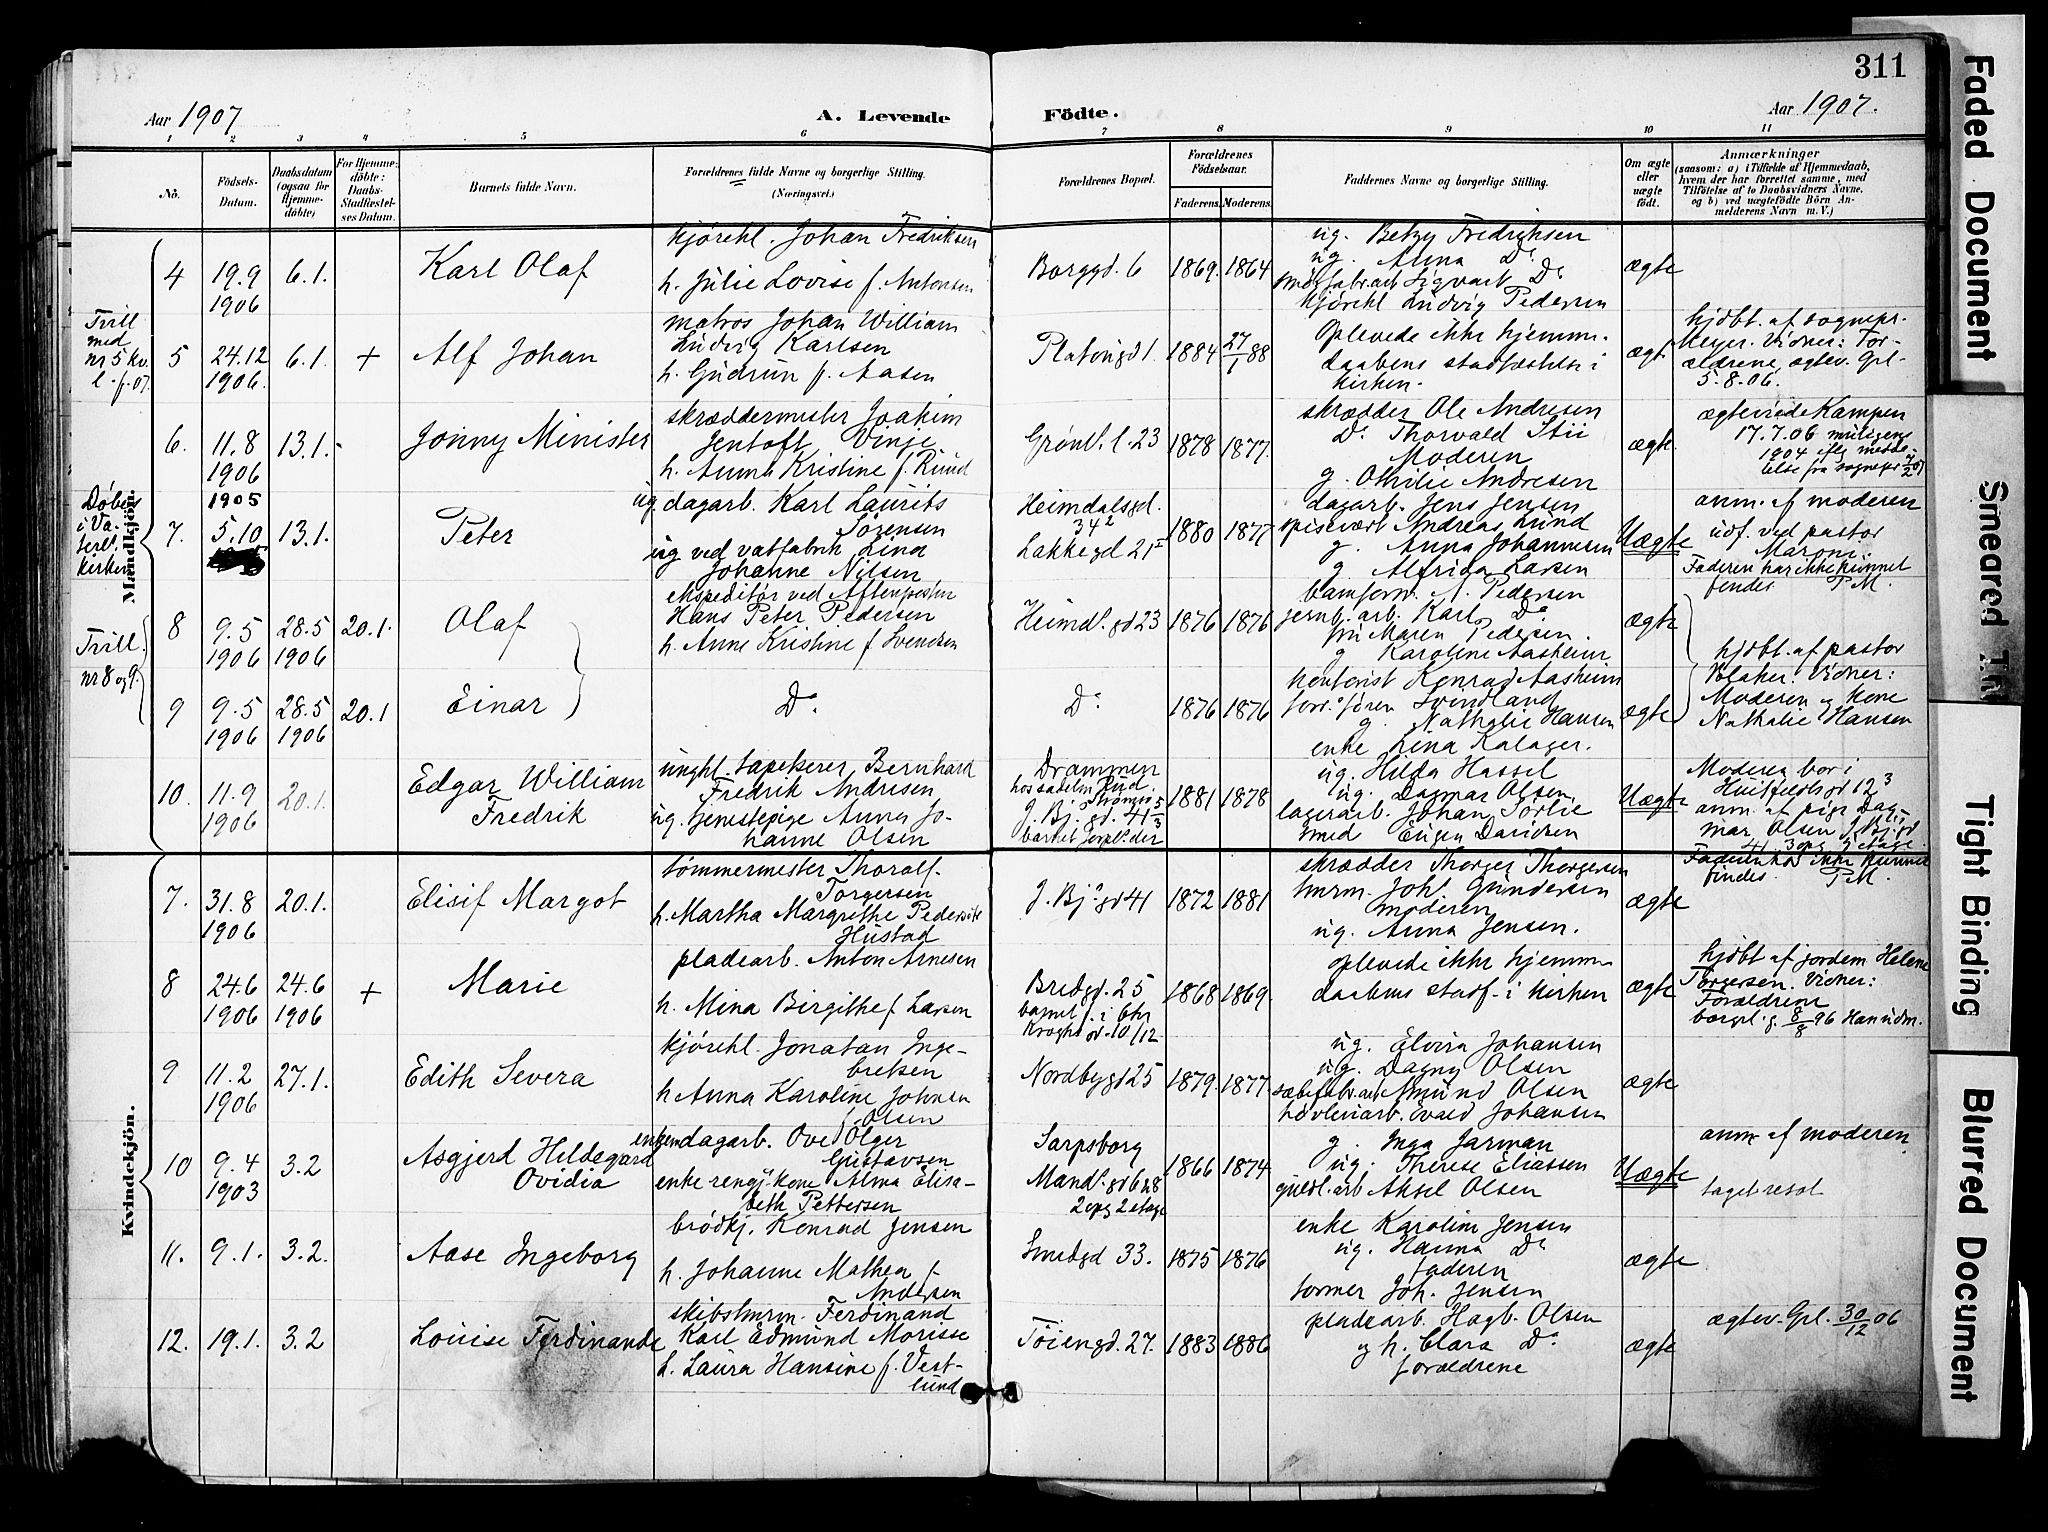 311
Aar 1907
A. Levende
Födte.
Aar 1907.
1 2 3 4 5 6 7 8 9 10 11
No.
Födsels-Datum.
Daabsdatum (ogsaa for Hjemmedöbte)
For Hjemmedöbte: Daabs-Stadfæstelses Datum.
Barnets fulde Navn.
Forældrenes fulde Navne og borgerlige Stilling. (Næringsvei.)
Forældrenes Bopæl.
Forældrenes Födselsaar.
Faderens. Moderens.
Faddernes Navne og borgerlige Stilling.
Om ægte eller uægte födt.
Anmærkninger
(saasom: a) i Tilfælde af Hjemmedaab, hvem der har forrettet samme, med Tilföielse af to Daabsvidners Navne. og b) ved uægtefödte Börn Anmelderens Navn m. V.)
Mandkjön.
4
19.9
1906
6.1.
Karl Olaf
kjørekl. Johan Fredriksen
h. Julie Lovise f. Antonsen
Borggd. 6
1869. 1864
ug. Betzy Fredriksen
ug. Anna Do
Sigvart Do
kjørekl Ludvig Pedersen
ægte
Tvill
med
nr 5 kv.
l. f. 07.
5
24.12
1906.
6.1.
+
Alf Johan
matros Johan William
Ludvig Karlsen
h. Gudrun f. Aasen
Platougd 1.
1884 27/1 88
Oplevede ikke hjemme-
daabens stadfæstelse i
kirken.
ægte
hjdbt. af sognepr.
Meyer. Vidner: For-
ældrene, ægtev. Grl-
5.8.06.
6.
11.8
1906
13.1.
Jonny Minister
skræddermester Joakim
Jentoft Vinje
h. Anna Kristine f. Rund
Grønl. l. 23
1878 1877.
skrædder Ole Andresen
Do Thorvald Stii
Moderen
g. Othilie Andresen
ægte
ægteviede Kampen
17.7.06 muligens
1904 iflg medde-
lelse fra sognepr
Døbt
i Va-
terl.
kirken
7.
1905
5.10
13.1.
Peter
ug. dagarb. Karl Laurits
Sørensen
ug ved vatfabrik Lina
Johanne Nilsen
Heimdalsgd.
34 2
Lakkegd 21 II
1880 1877
dagarb. Jens Jensen
spisevært Andreas Lund
g. Anna Johannesen
g. Alfrida Larsen
Uægte
anm. af moderen
udf. ved pastor
Maroni.
Faderen har ikke kunnet
findes P.M.
Tvill.
nr 8 og 9.
8
9.5
1906
28.5
1906
20.1.
Olaf
ekspeditør ved Aftenposten
Hans Peter Pedersen
h. Anne Kristine f. Svendsen
Heimd. gd 23
1876 1876
A. Pedersen
jernb. arb. Karl Do
fru Maren Pedersen.
g Karoline Aasheim.
ægte
9
9.5
1906
28.5
1906
20.1
Einar
Do
Do
1876 1876
kontorist Konrad Aasheim
forr. Søren Svindland
g. Nathalie Hansen
enke Lina Kalager.
ægte
hjdbt. af pastor
Blaker. Vidner:
Moderen og kone
Nathalie Hansen
10.
11.9
1906
20.1.
Edgar William
Fredrik
ungkl. tapetserer Bernhard
Fredrik Andresen
ug. tjenestepige Anna Jo-
hanne Olsen
Drammen
hos sadelm Rud.
J. Bj. gd. 41
1881 1878
ug. Hilda Hassel
ug. Dagmar Olsen
lagerarb. Johan Torlie
smed Eugen Davidsen
Uægte
Moderen bor i
Huitfeldtsgd 12 3
anm. af pige Dag-
mar Olsen J. Bj. gd
41 3 opg 4 etage.
Faderen has ikke kunnet
findes. P.M.
Kvindekjön.
7.
31.8
1906
20.1.
Elisif Margot
tømmermester Thoralf
Torgersen
h. Martha Margrethe Pedersdt
Hustad
J. Bj. gd 41
1872 1881
skrædder Thorger Thorgersen
tmrm. Johs Gundersen
Moderen
ug. Anna Jensen.
ægte
8
24.6
1906
24.6
1906
+
Marie
pladearb. Anton Arnesen
h. Mina Birgithe f. Larsen
Bredgd. 25
barnet f. i Chr
Kroghs gd. 10/12
1868 1869.
oplevede ikke hjemme
daabens stadf. i kirken
ægte
hjdbt af jordem Helene
Torgersen. Vidner:
Forældrene
borgel. g. 8/8 96 Hanvidm.
9
11.2
1906
27.1.
Edith Severa
kjørekl. Jonatan Inge-
bretsen
h Anna Karoline Johnsen
f. Olsen
Nordbygd 25
1879. 1877
ug. Elvira Johansen
ug. Dagny Olsen
sæbefabr.arb Amund Olsen
høvleriarb. Evald Johansen
ægte
10
9.4
1903
3.2
Asgjerd Hildegard
Ovidia
enkem dagarb. Ove Olger
Gustavsen
enke rengj. kone Alma Elisa-
beth Pettersen
Sarpsborg
Mand. gd 6 n 8
2 opg 2 etage
1866 1874
g. Inga Jarman
ug. Therese Eliassen
guldl. arb Aksel Olsen
Uægte
anm. af moderen.
taget resol
11.
9.1.
3.2.
Aase Ingeborg
brødkj. Konrad Jensen
h. Johanne Mathea f.
Andersen
Smedgd 33.
1875 1876
enke Karoline Jensen
ug. Hanna Do
faderen
former Joh. Jensen
ægte
12.
19.1.
3.2
Louise Ferdinande
skibstmrm. Ferdinand
Karl Edmund Morisse
h. Laura Hansine f. Vest-
lund
Töiengd. 27.
1883 1886
pladearb. Hagb. Olsen
og h. Clara Do
forældrene
ægte
ægtev. Grl. 30/12 06
Faded Document
Smeared
Tight Binding
Blurred Document